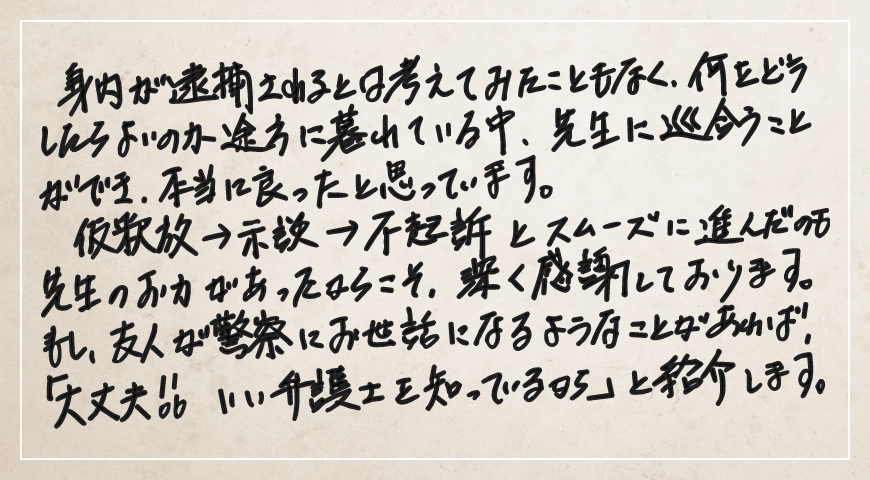 身内が逮捕されるとは考えてみたこともなく、何をどう
したらよいのか途方に暮れている中、先生に巡り合うこと
ができ、本当に良かったと思っています。
仮釈放→示談→不起訴とスムーズに進んだのも
先生のお力があったからこそ、深く感謝しております。
もし、友人が警察にお世話になるようなことがあれば、
「大丈夫!! いい弁護士を知っているから」と紹介します。